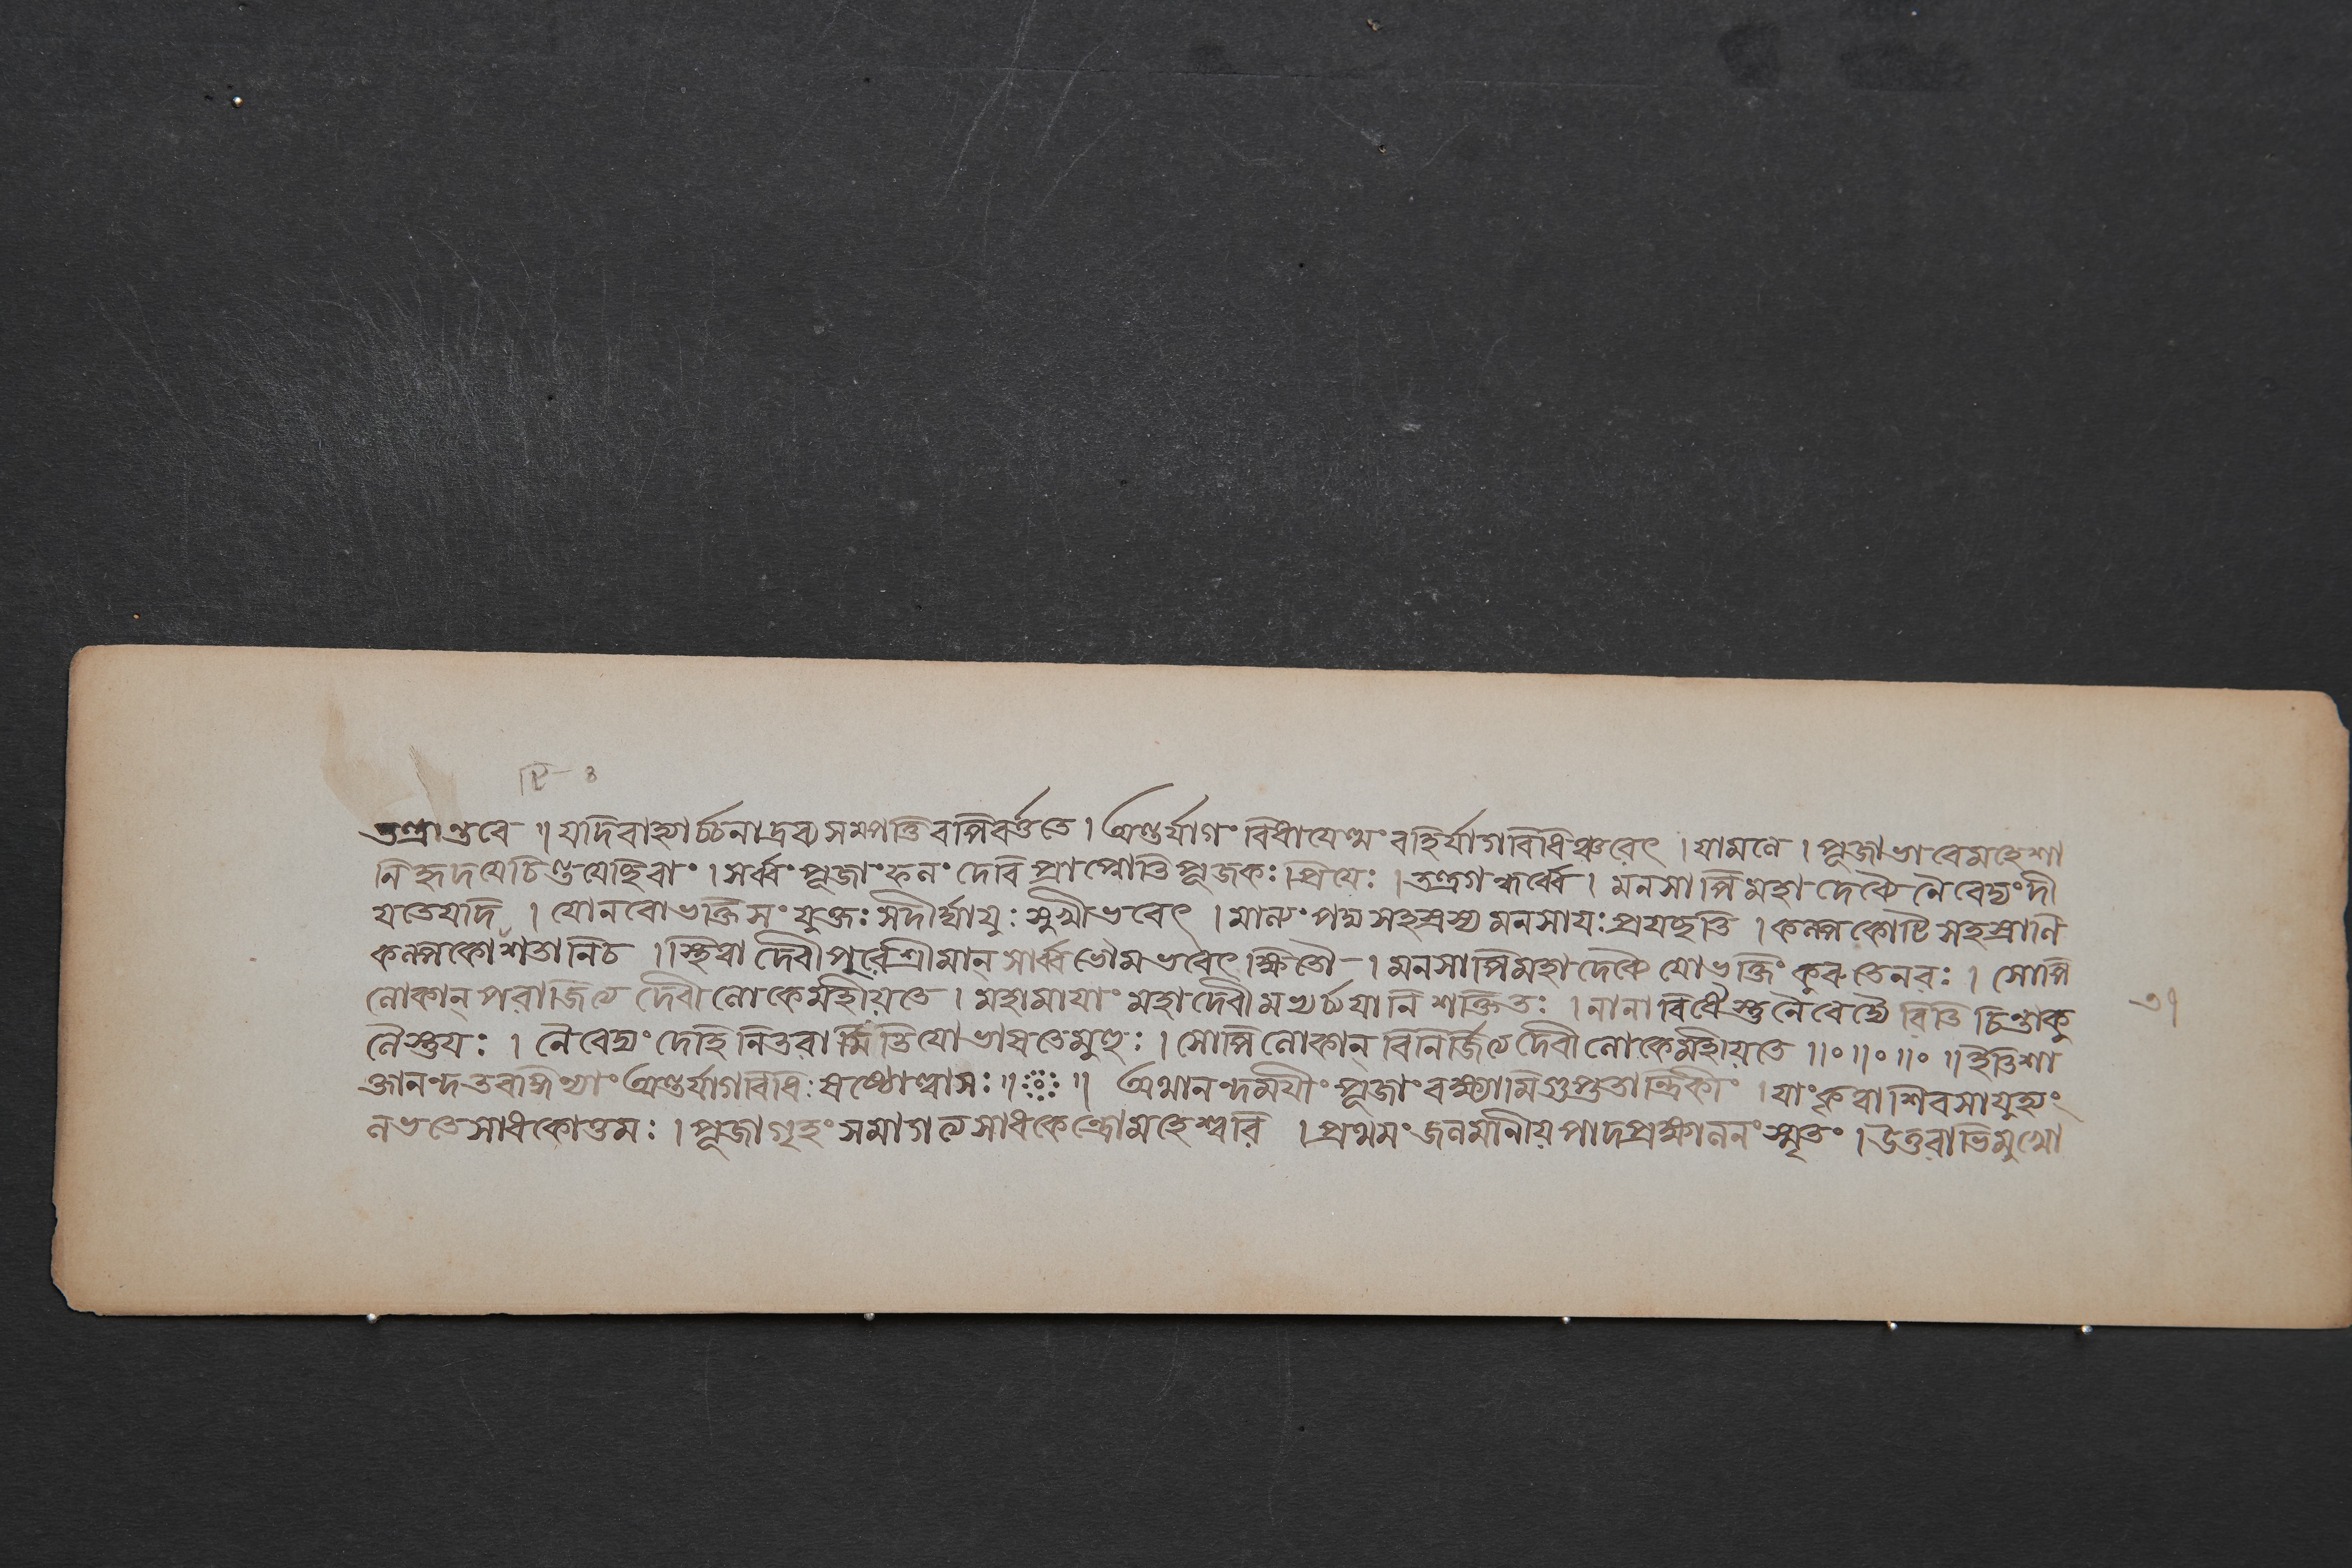 তন্ত্রান্তরে ॥ যদিবাহ্যার্চ্চনাদ্রব্য সম্পত্তিরপিবর্ত্ততে । অন্তর্যাগং বিধায়েত্থং বহির্যাগবিধিঞ্চরেৎ । যামলে । পূজাভাবেমহেশা
নি হৃদয়েচিন্তয়েচ্ছিবাং । সর্ব্বং পূজাং ফলং দেবি প্রাপ্নোতি পূজকঃ । প্রিয়েঃ । তন্ত্রগন্ধর্ব্বে । মনসাপি মহাদেব্যৈ নৈবেদ্যং দী
য়তেযদি । যোনরোভক্তিসংযুক্তঃ সদীর্ঘায়ুঃ সুখীভবেৎ । মাল্যং পদ্মসহস্রস্য মনসাযঃ প্রযচ্ছতি । কল্পকোটি সহস্রাণি
কল্পকোশতানিচ । স্থিত্বা দেবীপুরেশ্রীমান্ সার্ব্বভৌমভবেৎ ক্ষিতৌ । মনসাপিমহাদেব্যৈ যোভক্তিং কুরুতেনরঃ । সোপি
লোকান্ পরাজিত্য দেবীলোকেমহীয়তে । মহামায়াং মহাদেবীমর্চ্চয়ানি শক্তিতঃ । নানাবিধৈস্তুনৈবেদ্যৈ রিতি চিন্তাকু
লৈস্তুযঃ । নৈবেদ্যং দেহি নিতরামিতিযোভাষতেমুহুঃ । সোপিলোকান্ বিনির্জিত্য দেবীলোকেমহীয়তে ॥০॥০॥০॥ ইতিশা
ক্তানন্দতরঙ্গিণ্যাং অন্তর্যাগবিধিঃ ষষ্ঠোল্লাসঃ ॥ ॥ অথানন্দময়ীং পূজাং বক্ষ্যামিগুপ্ততান্ত্রিকীং । যাং কৃত্বা শিবসাযুজ্যং
লভতেসাধকোত্তমঃ । পূজাগৃহং সমাগত্য সাধকেন্দ্রোমহেশ্বরি । প্রথমং জলমানীয় পাদপ্রক্ষালনং স্মৃতং । উত্তরাভিমুখো
৩।